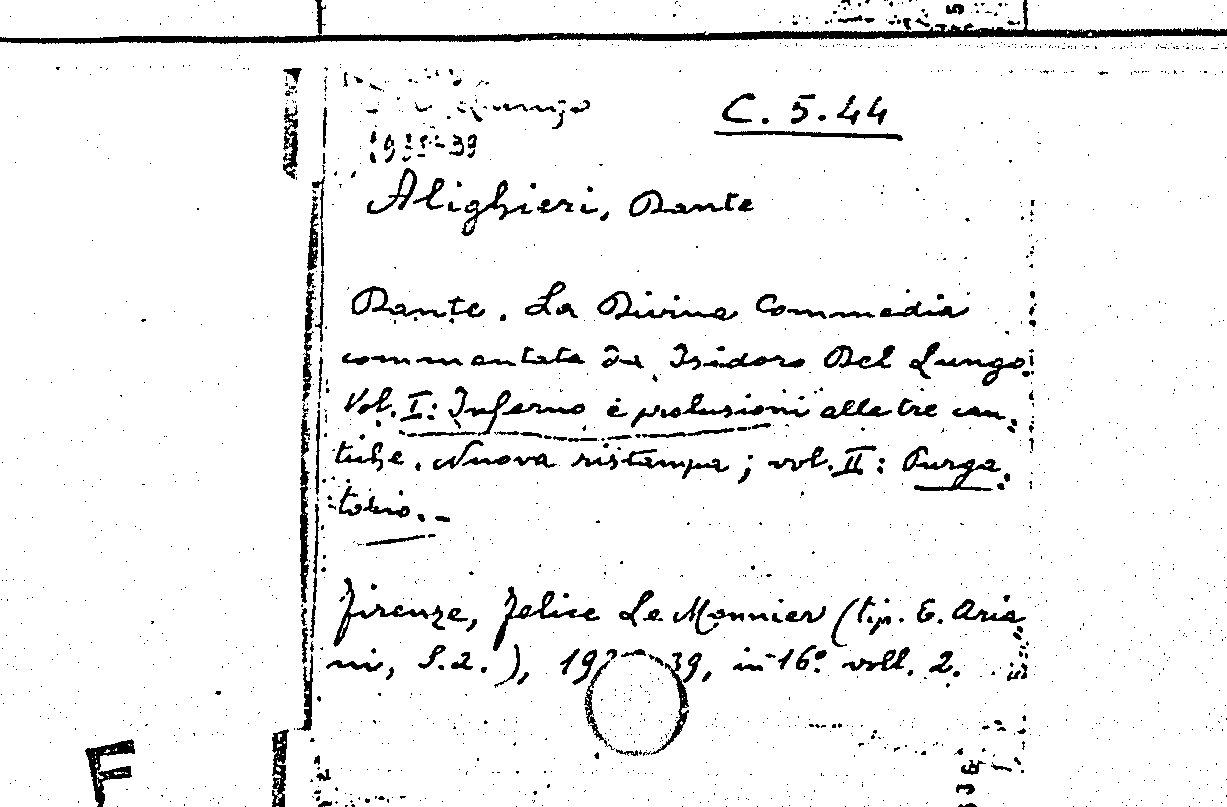 C. 5.44
Lungo
Alighieri, Dante
Dante. La Divina Commedia
commentata da Isidoro Del Lungo.
Vol. I: Inferno e prolusioni alle tre can-
tiche. Nuova ristampa; vol. II: Purga-
torio. -
Firenze, Felice Le Monnier (tip. E. Aria-
ni, S.a.), 39, in 16º voll. 2.
F